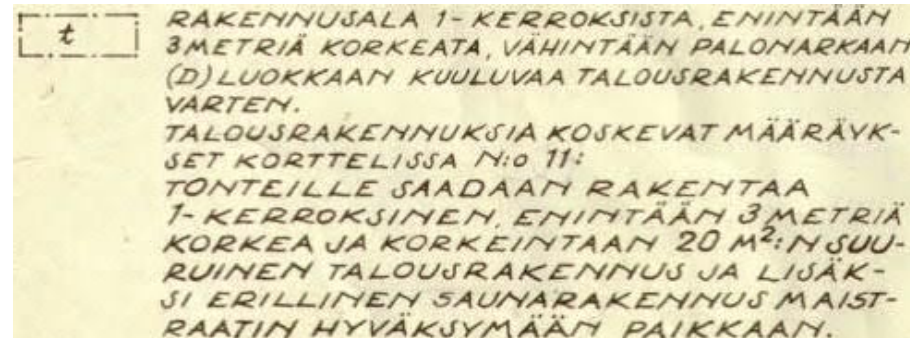 t
RAKENNUSALA 1-KERROKSISTA, ENINTÄÄN
3 METRIÄ KORKEATA, VÄHINTÄÄN PALONARKAAN
(D) LUOKKAAN KUULUVAA TALOUSRAKENNUSTA
VARTEN.
TALOUSRAKENNUKSIA KOSKEVAT MÄÄRÄYK-
SET KORTTELISSA N:o 11:
TONTEILLE SAADAAN RAKENTAA
1-KERROKSINEN, ENINTÄÄN 3 METRIÄ
KORKEA JA KORKEINTAAN 20 M²:N SUU-
RUINEN TALOUSRAKENNUS JA LISÄK-
SI ERILLINEN SAUNARAKENNUS MAIST-
RAATIN HYVÄKSYMÄÄN PAIKKAAN.